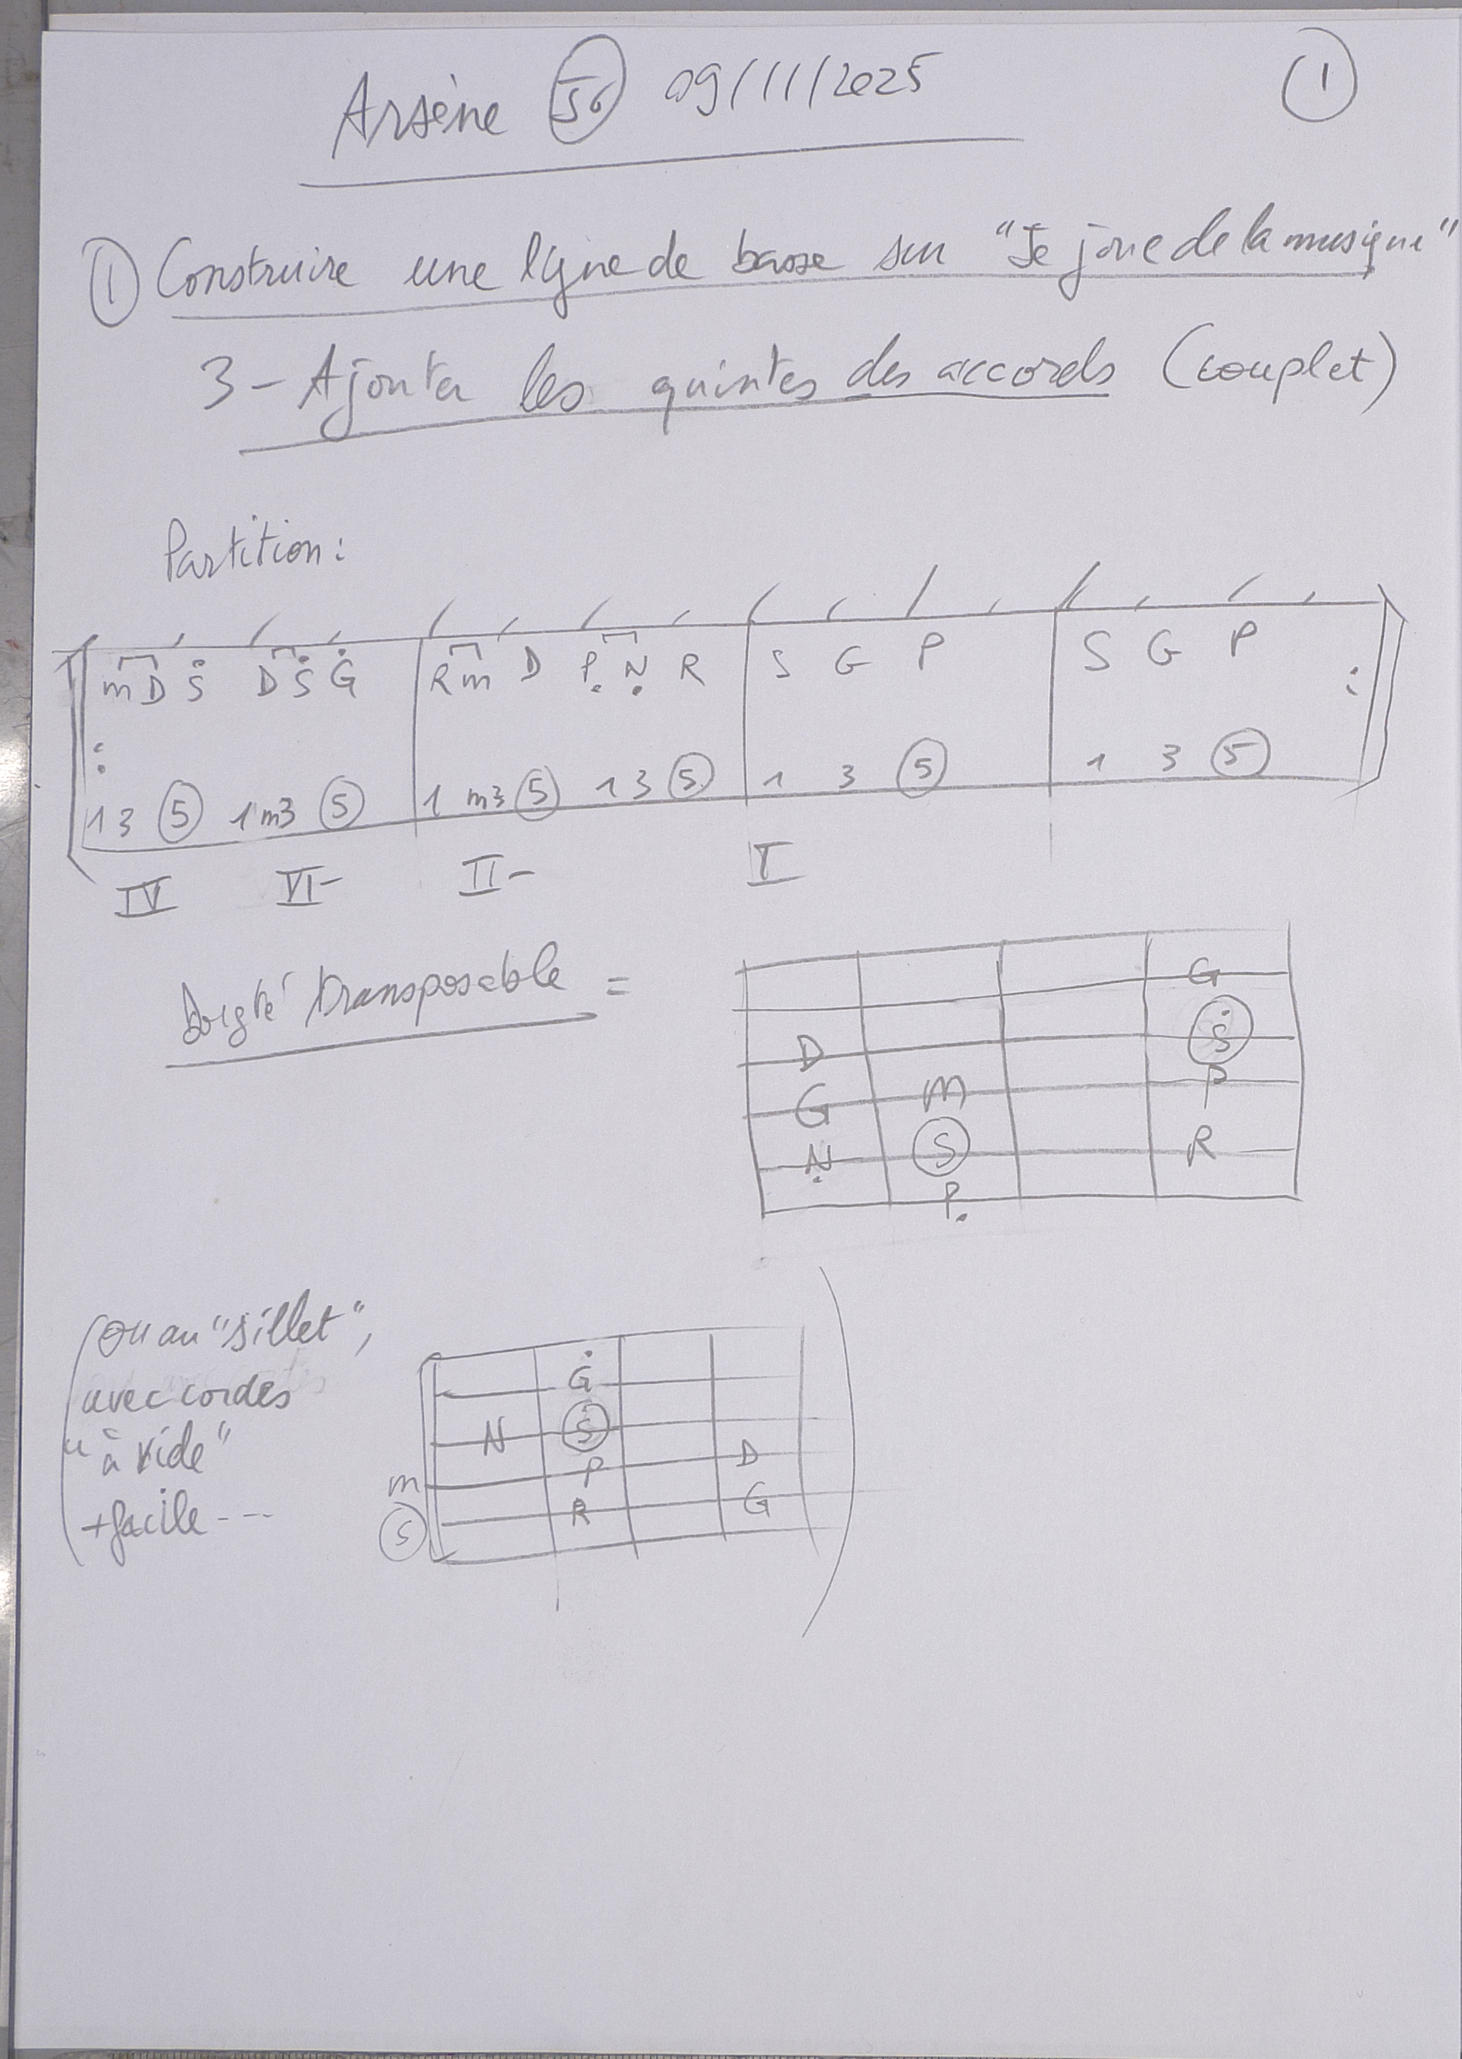 Arsène 56 09/11/2025 1
1 Construire une ligne de basse sur "Je joue de la musique"
3 - Ajouter les quintes des accords (couplet)
Partition :
m D Ṡ D Ṡ Ġ R m D P. Ṇ R S G P S G P :
: 1 3 5 1 m3 5 1 m3 5 1 3 5 1 3 5 1 3 5
IV VI- II- I
Doigté transposable =
G
D Ṡ
G m P
Ṇ S R
P.
(ou au "sillet",
avec cordes
"à vide"
+ facile ---
Ġ
N Ṡ
m P D
S R G